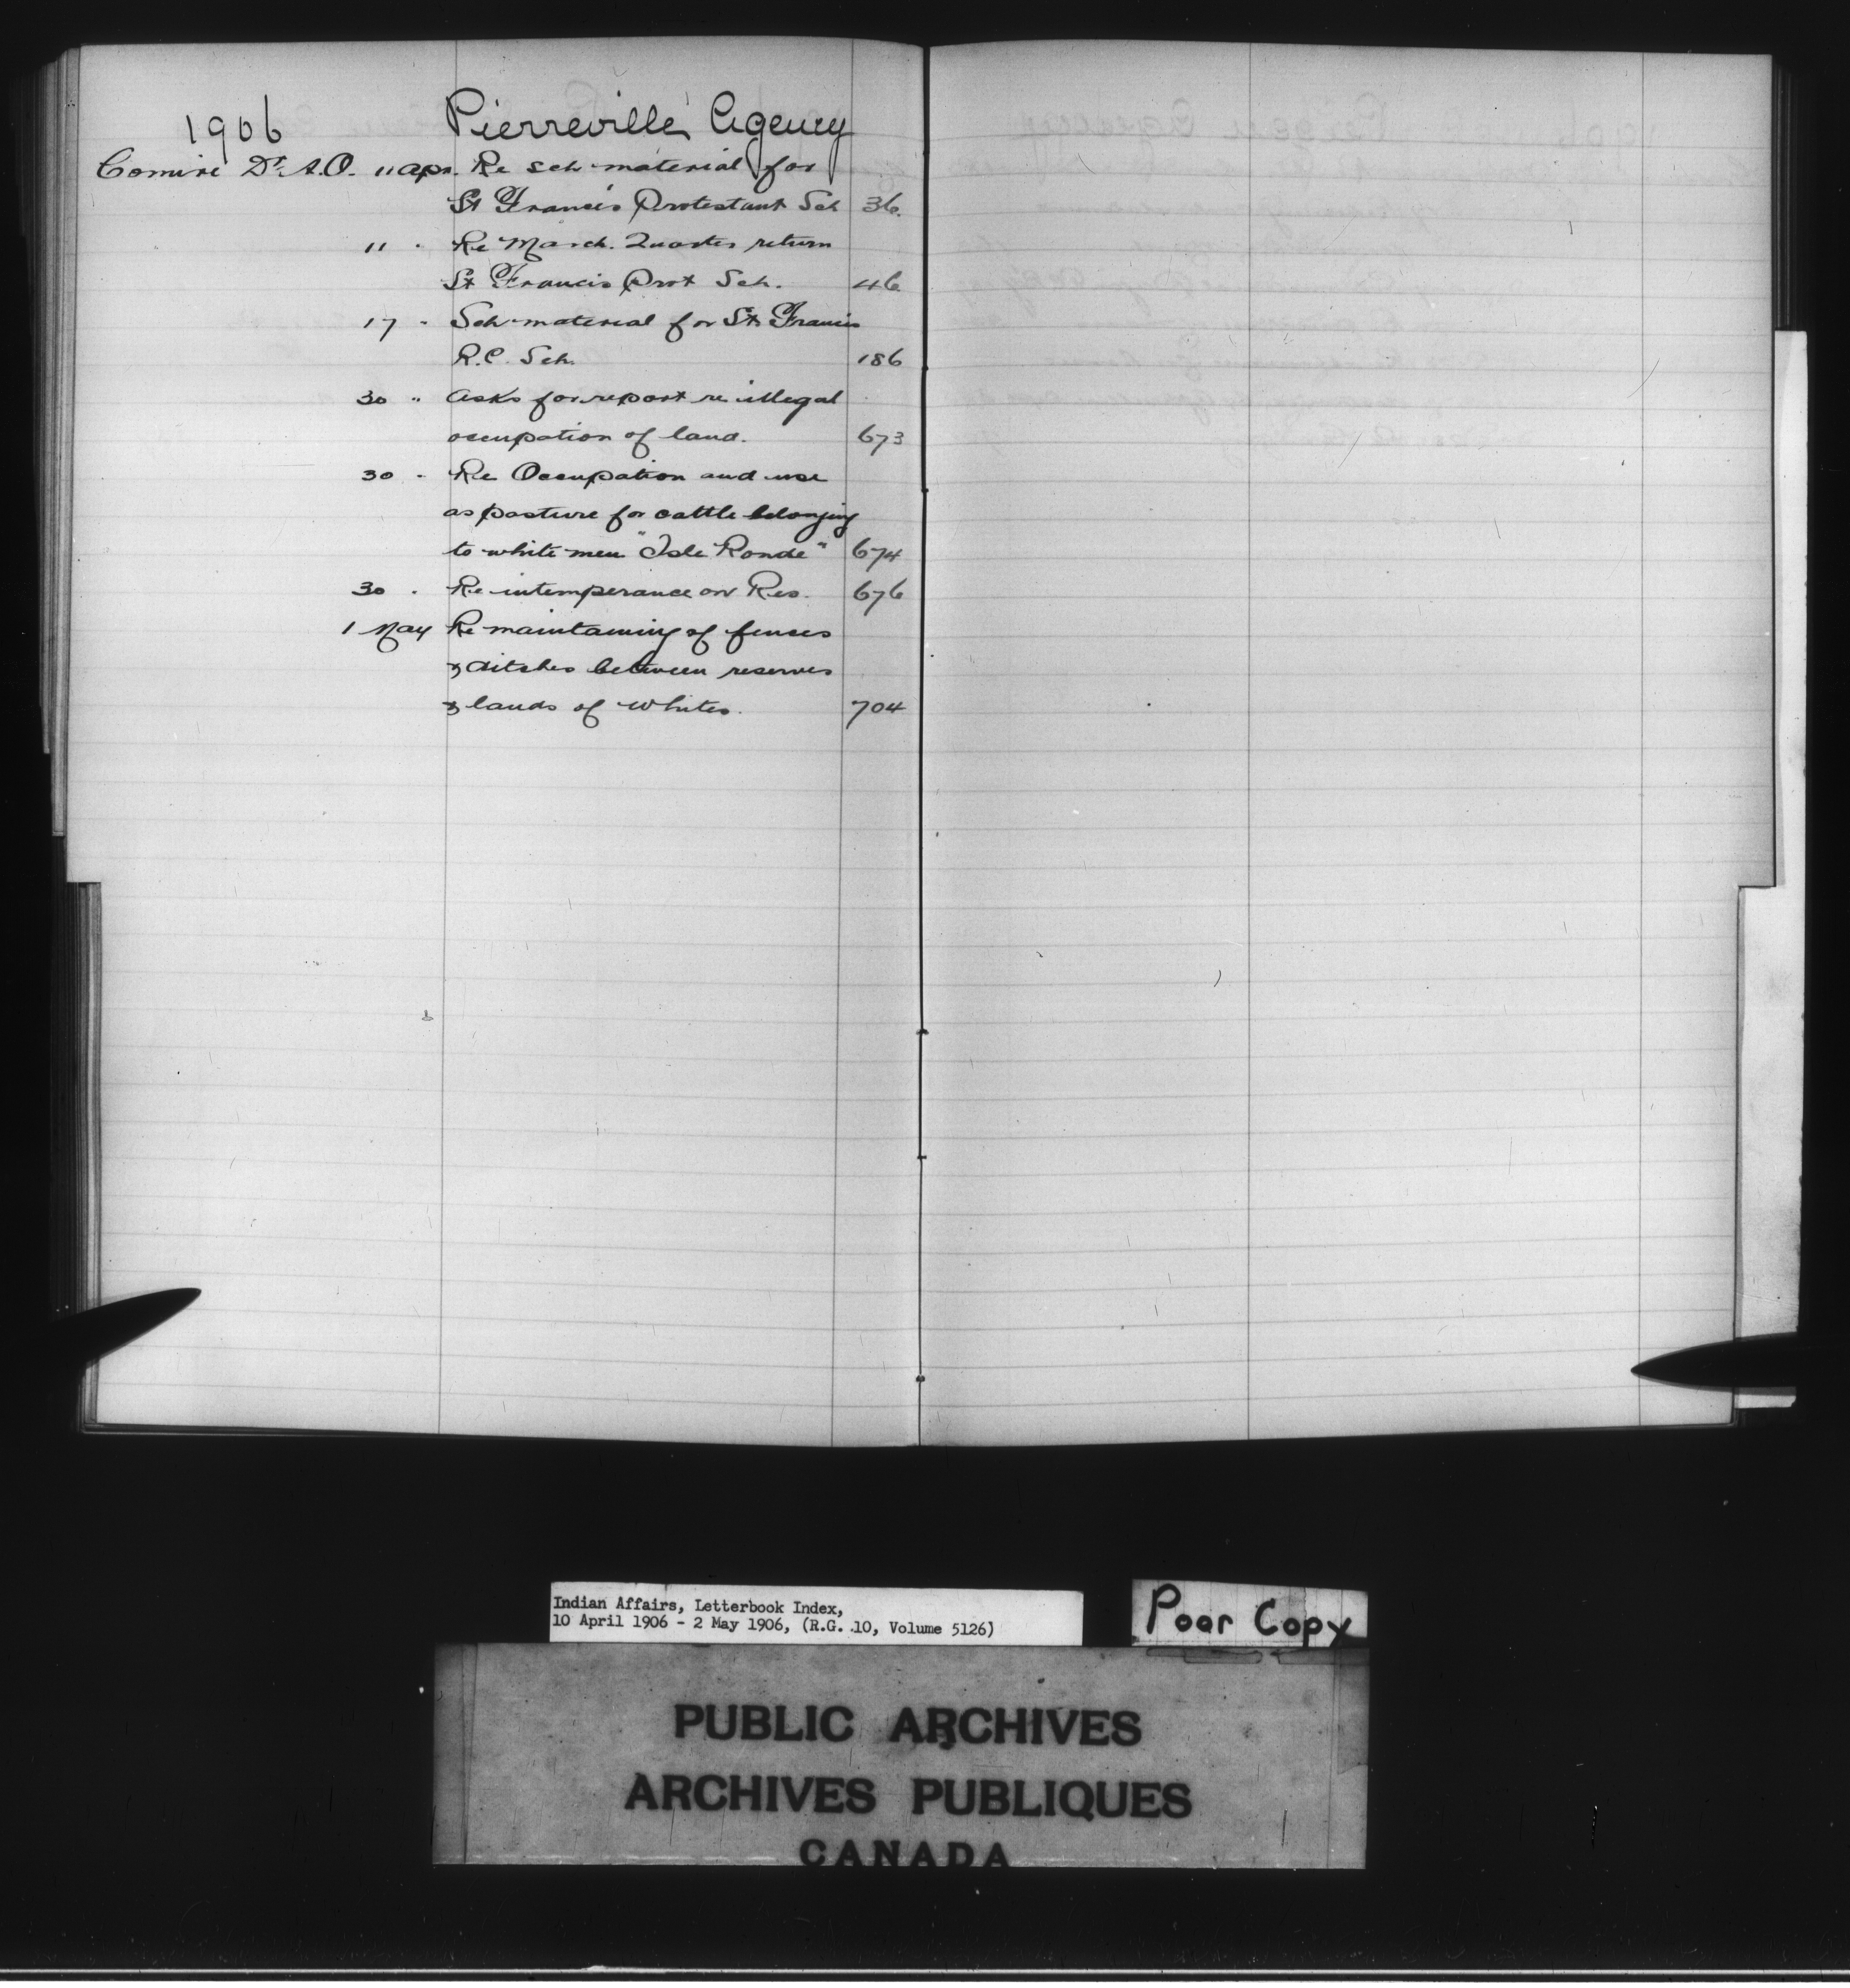 1906 Pierreville Agency
Comire Dr. A.O. 11 Apr. Re sch material for
St Francis Protestant Sch 36.
11 " Re March. Quarter return
St Francis Prot Sch. 46
17 " Sch material for St Francis
R.C. Sch. 186
30 " Asks for report re illegal
occupation of land. 673
30 " Re Occupation and use
as pasture for cattle belonging
to white men "Isle Ronde" 674
30 " Re intemperance on Res. 676
1 May Re maintaining of fences
& ditches between reserves
& lands of whites. 704
Indian Affairs, Letterbook Index,
10 April 1906 - 2 May 1906, (R.G. 10, Volume 5126)
Poor Copy
PUBLIC ARCHIVES
ARCHIVES PUBLIQUES
CANADA